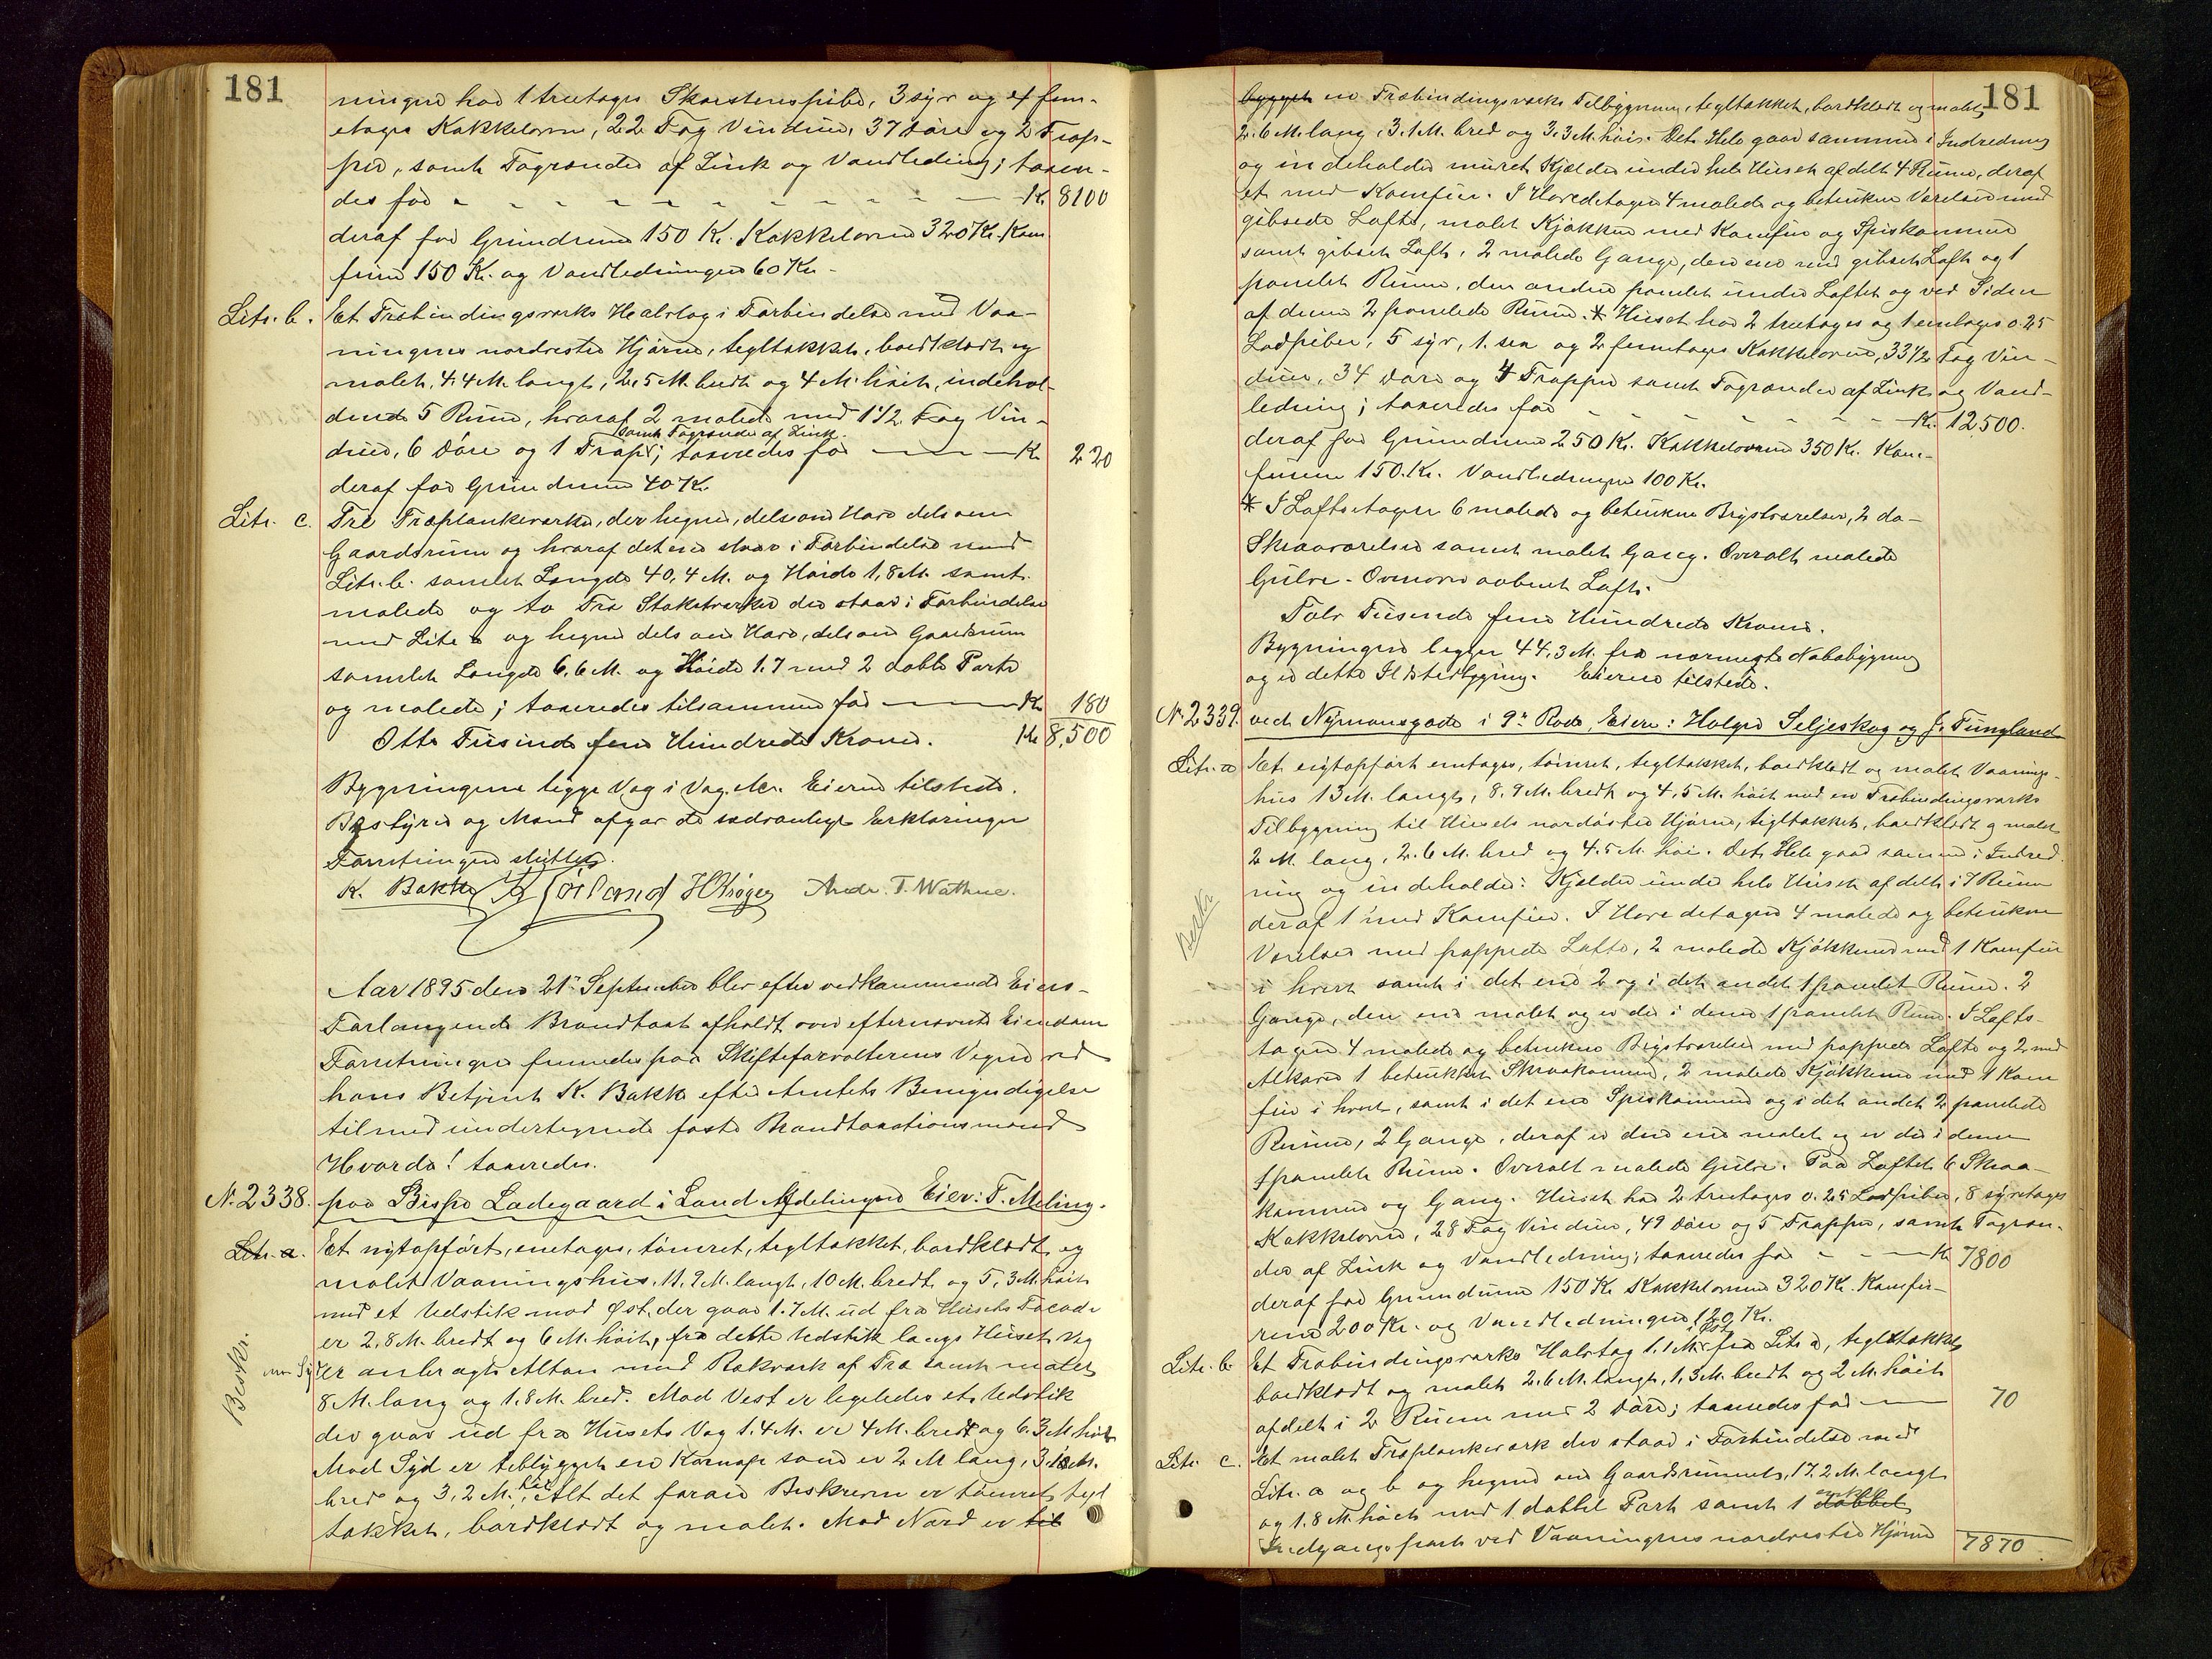 181
ningen har 1 treetages Skorstenspibe, 3 syv og 4 fem-
etages Kakkelovne, 22 Fag Vinduer, 37 Døre og 2 Trap-
per, samt Tagrender af Zink og Vandledning; taxer-
des for - - - Kr. 8100
deraf for Grundmur 150 Kr. Kakkelovne 320 Kr. Kom
furer 150 Kr. og Vandledningen 60 Kr.
Litr. b. Et Træbindingsverks Halvtag i Forbindelse med Vaa-
ningens nordvestre Hjørne, tegltakket, bordklædt og
malet, 4,4 M. langt, 2,5 M. bredt og 4 M. høit, indehol-
dende 5 Rum, hvoraf 2 malede med 1 1/2 Fag Vin-
samt Tagrender af Zink.
duer, 6 Døre og 1 Trap; taxeredes for Kr 220
deraf for Grundmur 40 Kr.
Litr. c. Tre Træplankeverker, der hegne, dels om Have dels om
Gaardsrum og hvoraf det ene staar i Forbindelse med
Litr. b. samlet Længde 40,4 M. og Høide 1,8 M. samt
malede og to Træ Stakitverker der staar i Forbindelse
med Litr a og hegne dels om Have, dels om Gaardsrum
samlet Længde 6,6 M. og Høide 1.7 med 2 doble Porte
og malede; taxeredes tilsammen for Kr 180
Otte Tusinde fem Hundrede Kroner. Kr 8,500
Bygningerne ligge Væg i Væg. Eieren tilstede.
Bestyrer og Mænd afgav de sædvanlige Erklæringer
Forretningen sluttet.
K. Bakke Sørland H Krøger Andr. T. Wathne.
Aar 1895 den 21de September blev efter vedkommende Eiers
Forlangende Brandtaxt afholdt over efternævnte Eiendom
Forretningen fremmedes paa Skifteforvalterens Vegne ved
hans Betjent K. Bakke efter Amtets Bemyndigelse
tilmed undertegnede faste Brandtaxationsmænd
Hvorda! taxeredes.
N. 2338. paa Bispe Ladegaard i Land Afdelingen Eier: T. Meling.
Litr. a. Et nytopført, enetages, tømret, tegltakket, bordklædt og
malet Vaaningshus, 11,9 M. langt, 10 M. bredt og 5,3 M. høit
med et Udstik mod Øst, der gaar 1.7 M. ud fra Husets Facade
er 2,8 M. bredt og 6 M. høit, fra dette Udstik langs Husets Væg
Beskr.
mod Syd er anbragt Altan med Rækverk af Træ samt malet
8 M. lang og 1.8 M. bred. Mod Vest er ligeledes et Udstik
der gaar ud fra Husets Væg 1.4 M. er 4 M. bredt og 6.3 M. høit
Mod Syd er tilbygget en Karnap som er 2 M lang, 3,1 M.
bred og 3,2 M. høi, Alt det foran Beskrevne er tømret, tegl
takket, bordklædt og malet. Mod Nord er til
181
bygget en Træbindingsverks Tilbygning, tegltakket, bordklædt og malet
2.6 M. lang, 3.1 M. bred og 3,3 M. høi. Det Hele gaar sammen i Indredning
og indeholder muret Kjælder under hele Huset afdelt 4 Rum, deraf
et med Komfur. I Hovedetagen 4 malede og betrukne Værelser med
gibsede Lofte, malet Kjøkken med Komfur og Spiskammer
samt gibset Loft, 2 malede Gange, den ene med gibset Loft og 1
panelet Rum, den anden panelet under Loftet og ved Siden
af denne 2 panelede Rum. * Huset har 2 treetages og 1 enetages 0.25
Lodpiber, 5 syv, 1. sex og 2 femetages Kakkelovne, 33 1/2 Fag Vin-
duer, 34 Døre og 4 Trapper samt Tagrender af Zink og Vand-
ledning; taxeredes for - - - Kr. 12,500.
deraf for Grundmur 250 Kr. Kakkelovne 350 Kr. Kom-
furer 150. Kr. Vandledningen 100 Kr.
* I Loftsetagen 6 malede og betrukne Brystværelser, 2 do-
Skraaværelser samt malet Gang. Overalt malede
Gulve. Ovenover aabent Loft.
Tolv Tusinde fem Hundrede Kroner.
Bygningen ligger 44,3 M. fra nærmeste Nabobygning
og er dette Ildstedbygning. Eieren tilstede.
N. 2339. ved Nymansgade i 9de Rode, Eiere: Holger Seljeskog og J. Tungland
Litr. a Et nytopført enetages, tømret, tegltakket, bordklædt og malet Vaanings-
hus 13 M. langt, 8.9 M. bredt og 4,5 M. høit med en Træbindingsverks
Tilbygning til Husets nordøstre Hjørne, tegltakket, bordklædt og malet
2 M. lang, 2.6 M. bred og 4.5 M. høi. Det Hele gaar sammen i Indred-
ning og indeholder: Kjælder under hele Huset afdelt i 7 Rum
Beskr
deraf 1 med Komfur. I Hovedetagen 4 malede og betrukne
Værelser med pappede Lofte, 2 malede Kjøkkener med 1 Komfur
i hvert samt i det ene 2 og i det andet 1 panelet Rum. 2
Gange, den ene malet og er der i denne 1 panelet Rum. I Lofts-
tagen 4 malede og betrukne Brystværelser med pappede Lofte og 2 med
Alkover 1 betrukket Skraakammer, 2 malede Kjøkkener med 1 Kom
fur i hvert, samt i det ene Spiskammer og i det andet 2 panelede
Rum, 2 Gange, deraf er den ene malet og er der i denne
1 panelet Rum. Overalt malede Gulve. Paa Loftet 6 Skraa-
kammer og Gang. Huset har 2 treetages 0.25 Lodpiber, 8 syvetages
Kakkelovne, 28 Fag Vinduer, 49 Døre og 5 Trapper, samt Tagren-
der af Zink og Vandledning; taxeredes for - - Kr 7800
deraf for Grundmur 150 Kr Kakkelovne 320 Kr. Komfu-
rene 200 Kr. og Vandledningen 120 Kr.
i Øst
Litr. b Et Træbindingsverks Halvtag 1.1 M. fra Litr a, tegltakket
bordklædt og malet 2.6 M. langt, 1,3 M. bredt og 2 M. høit
afdelt i 2 Rum med 2 Døre; taxeredes for 70
Litr. c. Et malet Træplankeverk der staar i Forbindelse med
Litr. a og b og hegner om Gaardsrummet, 17.2 M. langt
og 1.8 M. høit med 1 dobbel Port samt 1 enkelt dobbel
Indgangsport ved Vaaningens nordvestre Hjørne 7870